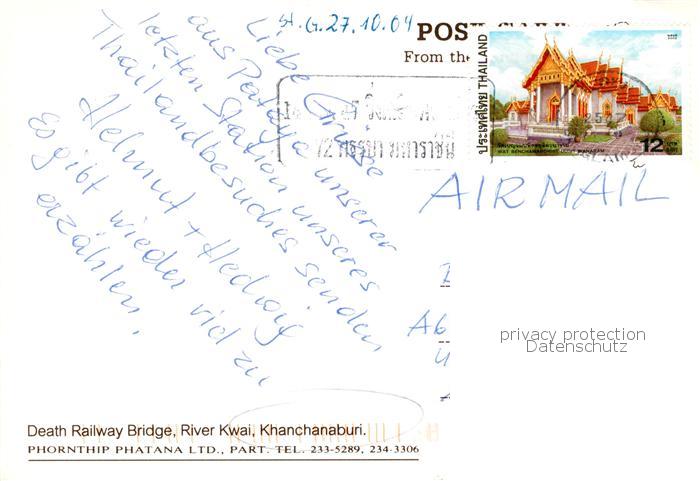 st. G. 27.10.04
POST CARD
From the
ประเทศไทย THAILAND
WAT BENCHAMABOPHIT
12
72 พรรษา มหาราชินี
AIR MAIL
Liebe Grüsse
aus Pataya unserer
letzten Station unseres
Thailandbesuches senden
Helmut + Hedwig
Es gibt wieder viel zu
erzählen.
Ab
privacy protection
Datenschutz
Death Railway Bridge, River Kwai, Khanchanaburi.
PHORNTHIP PHATANA LTD., PART. TEL. 233-5289, 234-3306